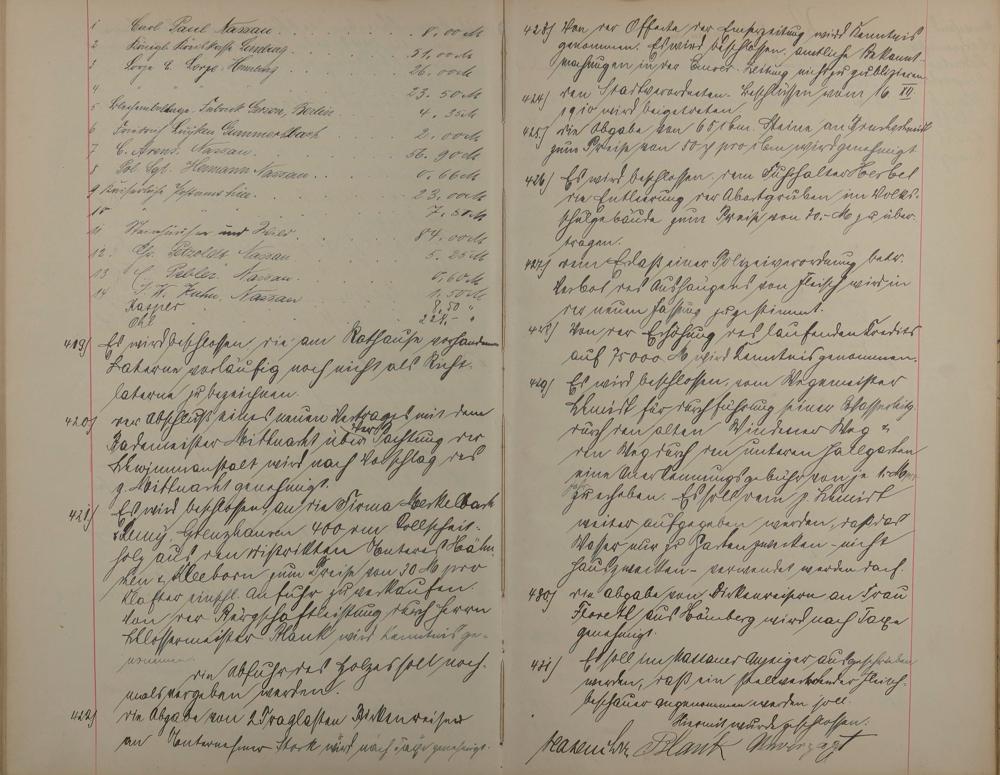 1 Carl Paul Nassau . . . . 8,00 M
2 Königl. Forstkasse . . . 51,00 M
3 . . . 26.00 M
4 " . . . 23.50 M
5 Fabrik Gerson, Berlin . . 4,35 M
6 Gummersbach . . 2.00 M
7 C. Arens. Nassau . . . 56.90 M
8 Pol. Sgt. Hermann Nassau . . . 0.66 M
9 . . . 23,00 M
10 . . . 7.50 M
11 und . . . 84,00 M
12. Chr. Nassau . . . 5.25 M
13 C. Nassau . . . 0,60 M
14 F. W. Kuhn, Nassau 1.50 M
Kasper 8,50 "
Ohl 221.- "
419) Es wird beschlossen die am Rathause vorhandene
Laterne vorläufig noch nicht als Richt-
laterne zu bezeichnen.
420) der Abschluß eines neuen Vertrages mit dem
Bademeister Mittnacht über Pachtung der
Schwimmanstalt wird nach Vorschlag des
p. Mittnacht genehmigt.
421) Es wird beschlossen, an die Firma Merkelbach
Remy, Grenzhausen 400 rm Rollscheit-
holz aus den Distrikten Unteres Hähn-
chen & Kleeborn zum Preise von 30 M pro
Klafter einschl. Anfuhr zu verkaufen.
Von der Bürgschaftleistung durch Herrn
Schlossermeister Blank wird Kenntnis ge-
nommen.
die Abfuhr des Holzes soll noch-
mals vergeben werden.
422) die Abgabe von 2 Traglasten Birkenreiser
an Unternehmer Stork wird nach Taxe genehmigt.
423) Von der Offerte der Emserzeitung wird Kenntnis
genommen. Es wird beschlossen, amtliche Bekannt-
machungen in der Emser-Zeitung nicht zu publizieren
424) den Stadtverordneten-Beschlüssen vom 16. XII.
1910 wird beigetreten
425) die Abgabe von 65 cbm. Steine an
zum Preise von 50 pro cbm wird genehmigt
426) Es wird beschlossen, dem Fuhrhalter Herbel
die Entleerung der Abortgruben im Volks-
schulgebäude zum Preise von 70.- M zu über-
tragen.
427) dem Erlaß einer Polizeiverordnung betr.
Verbot des Aushängens von Fleisch wird in
der neuen Fassung zugestimmt.
428) Von der Erhöhung des laufenden Kredits
auf 75000 M wird Kenntnis genommen.
429) Es wird beschlossen, vom Wegemeister
für durchführung seiner Wasserleitg.
durch den alten Windener Weg &
den Weg durch den unteren Hallgarten
eine Anerkennungsgebühr von je 1.- M
zu erheben. Es soll dem p.
weiter aufgegeben werden, daß das
Wasser nur zu Gartenzwecken - nicht
Hauszwecken - verwendet werden darf.
430) die Abgabe von Birkenreisern an Frau
aus Hömberg wird nach Taxe
genehmigt.
431) Es soll im Nassauer Anzeiger ausgeschrieben
werden, daß ein stellvertretender Fleisch-
beschauer angenommen werden soll.
Hiermit wurde geschlossen.
Hasenclever Blank Unverzagt